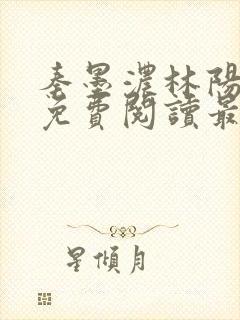 秦墨濃林陽
免費閱讀最
星傾月